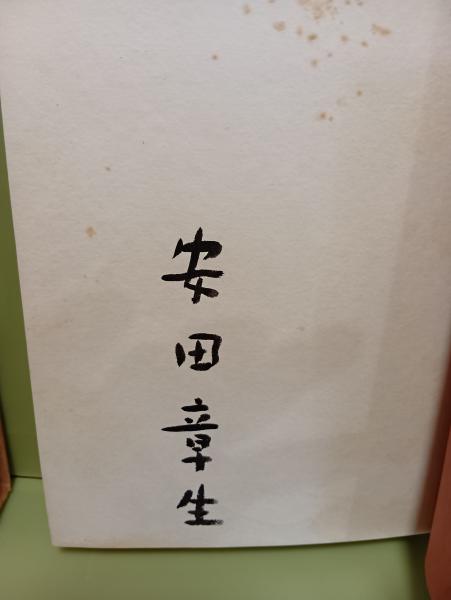 安田章生